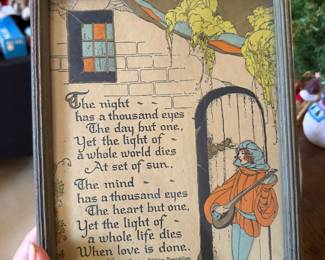 The night - -
has a thousand eyes
The day but one,
Yet the light of -
a whole world dies
At set of sun.
The mind - -
has a thousand eyes
The heart but one,
Yet the light of -
a whole life dies
When love is done.